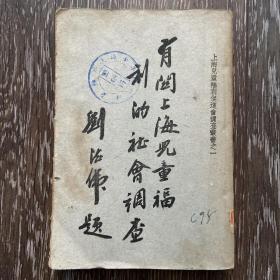 上海兒童福利促進會調查叢書之一
有關上海兒童福
利的社會調查
劉法佛題
C98